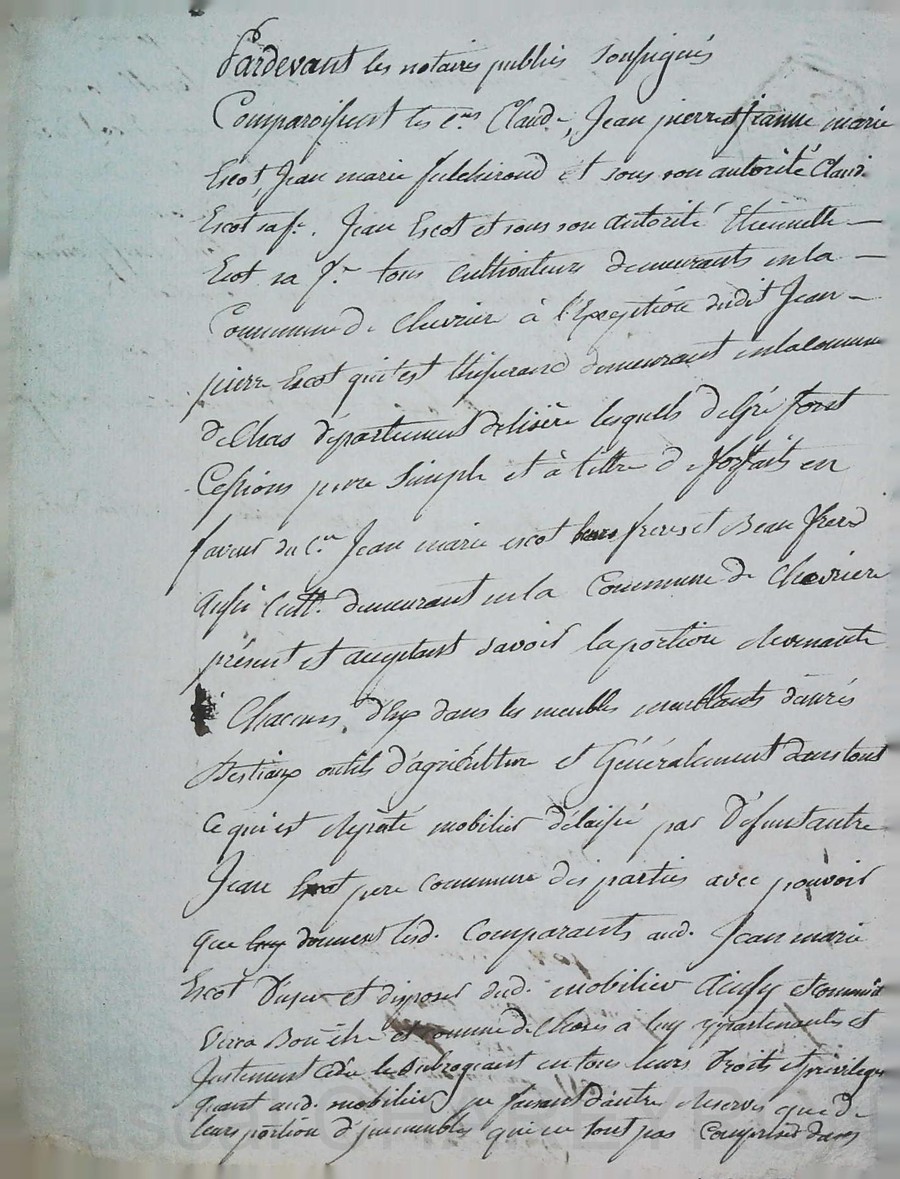 Pardevant les notaires publics soussignés
Comparoissent les c.ens Claude, Jean pierre et jeanne marie
Escot, Jean marie fulchiroud et sous son autorité Claud.
Escot sa f.e. Jean Escot et sous son autorité Etiennette —
Escot sa f.e tous cultivateurs demeurants en la —
Commune de Chevrier à l'Exception dudit Jean —
pierre Escot qui est demeurant en la commune
de Chas département de lisère lesquels de gré font
Cessions pure Simple et à tittre de forfaits en
faveur du C.en Jean marie escot leurs freres et Beau frere
aussi Cult.r demeurant en la Commune de Chevrier
présent et acceptant savoir la portion revenante
Chacuns d'Eux dans les meubles meublants danrés
Bestiaux outils d'agriculture et Généralement dans tout
ce qui est réputé mobilier délaissé par Défunt autre
Jean Escot pere commun des parties avec pouvoir
que donnent lesd. Comparants aud. Jean marie
Escot D'user et disposer dud. mobilier Ainsy et comme
verra Bon être et comme de choses a luy appartenantes et
Justement Cédé le Subrogeant en tous leurs Droits et privileges
quant aud. mobilier ne faisant d'autre réserves que de
leurs portion d'immeubles qui ne sont pas Comprises dans